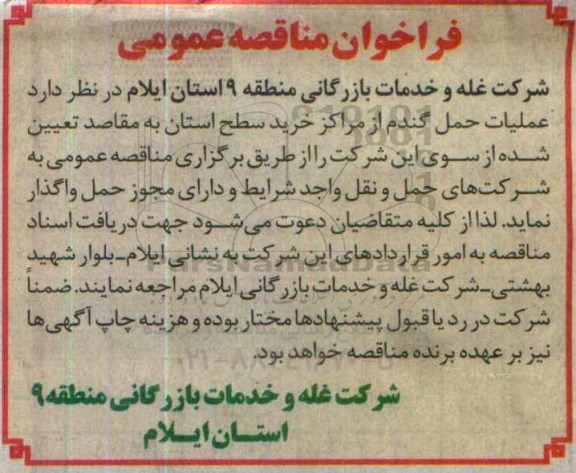 فراخوان مناقصه عمومی
شرکت غله و خدمات بازرگانی منطقه ۹ استان ایلام در نظر دارد
عملیات حمل گندم از مراکز خرید سطح استان به مقاصد تعیین
شده از سوی این شرکت را از طریق برگزاری مناقصه عمومی به
شرکت‌های حمل و نقل واجد شرایط و دارای مجوز حمل واگذار
نماید. لذا از کلیه متقاضیان دعوت می‌شود جهت دریافت اسناد
مناقصه به امور قراردادهای این شرکت به نشانی ایلام-بلوار شهید
بهشتی-شرکت غله و خدمات بازرگانی ایلام مراجعه نمایند. ضمناً
شرکت در رد یا قبول پیشنهادها مختار بوده و هزینه چاپ آگهی‌ها
نیز بر عهده برنده مناقصه خواهد بود.
شرکت غله و خدمات بازرگانی منطقه ۹
استان ایلام
ParsNamadData